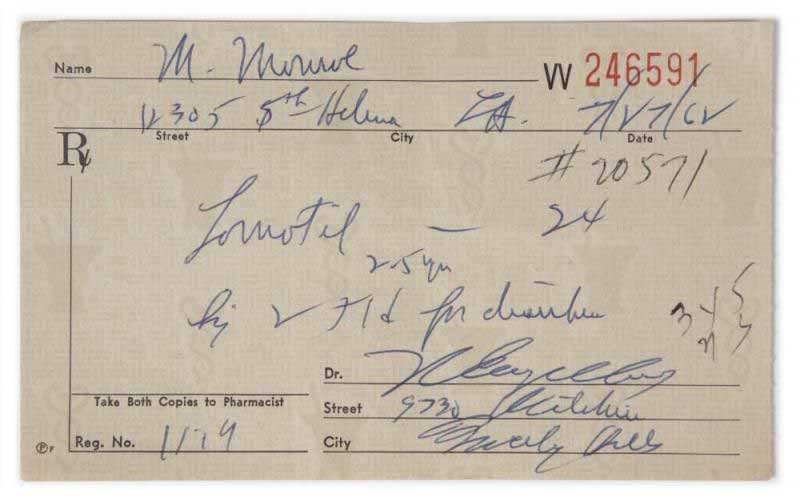 Name M. Monroe W 246591
12305 5th Helena LA. 7/27/62
Street City Date
Rx # 20571
Lomotil — 24
2.5 gm
Sig 2 tid for diarrhea
Dr.
Take Both Copies to Pharmacist Street 9730 Wilshire
Reg. No. 1179 City Beverly Hills